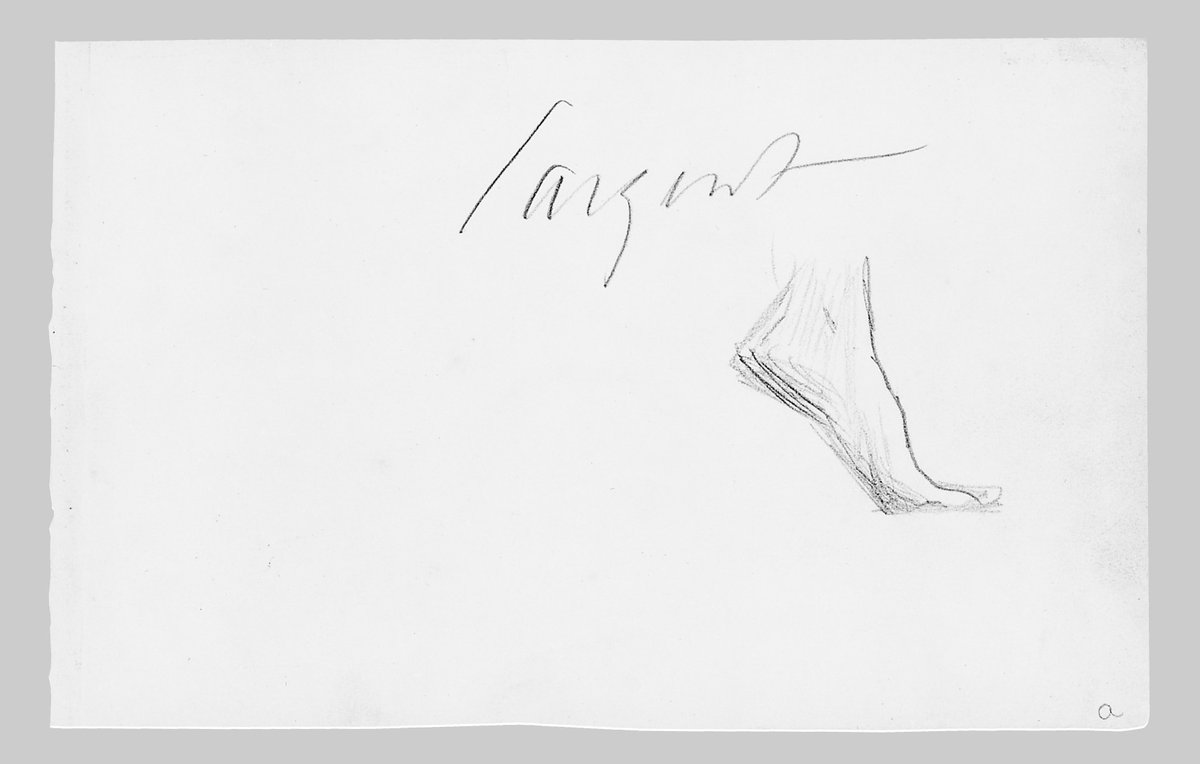 Sargent
a